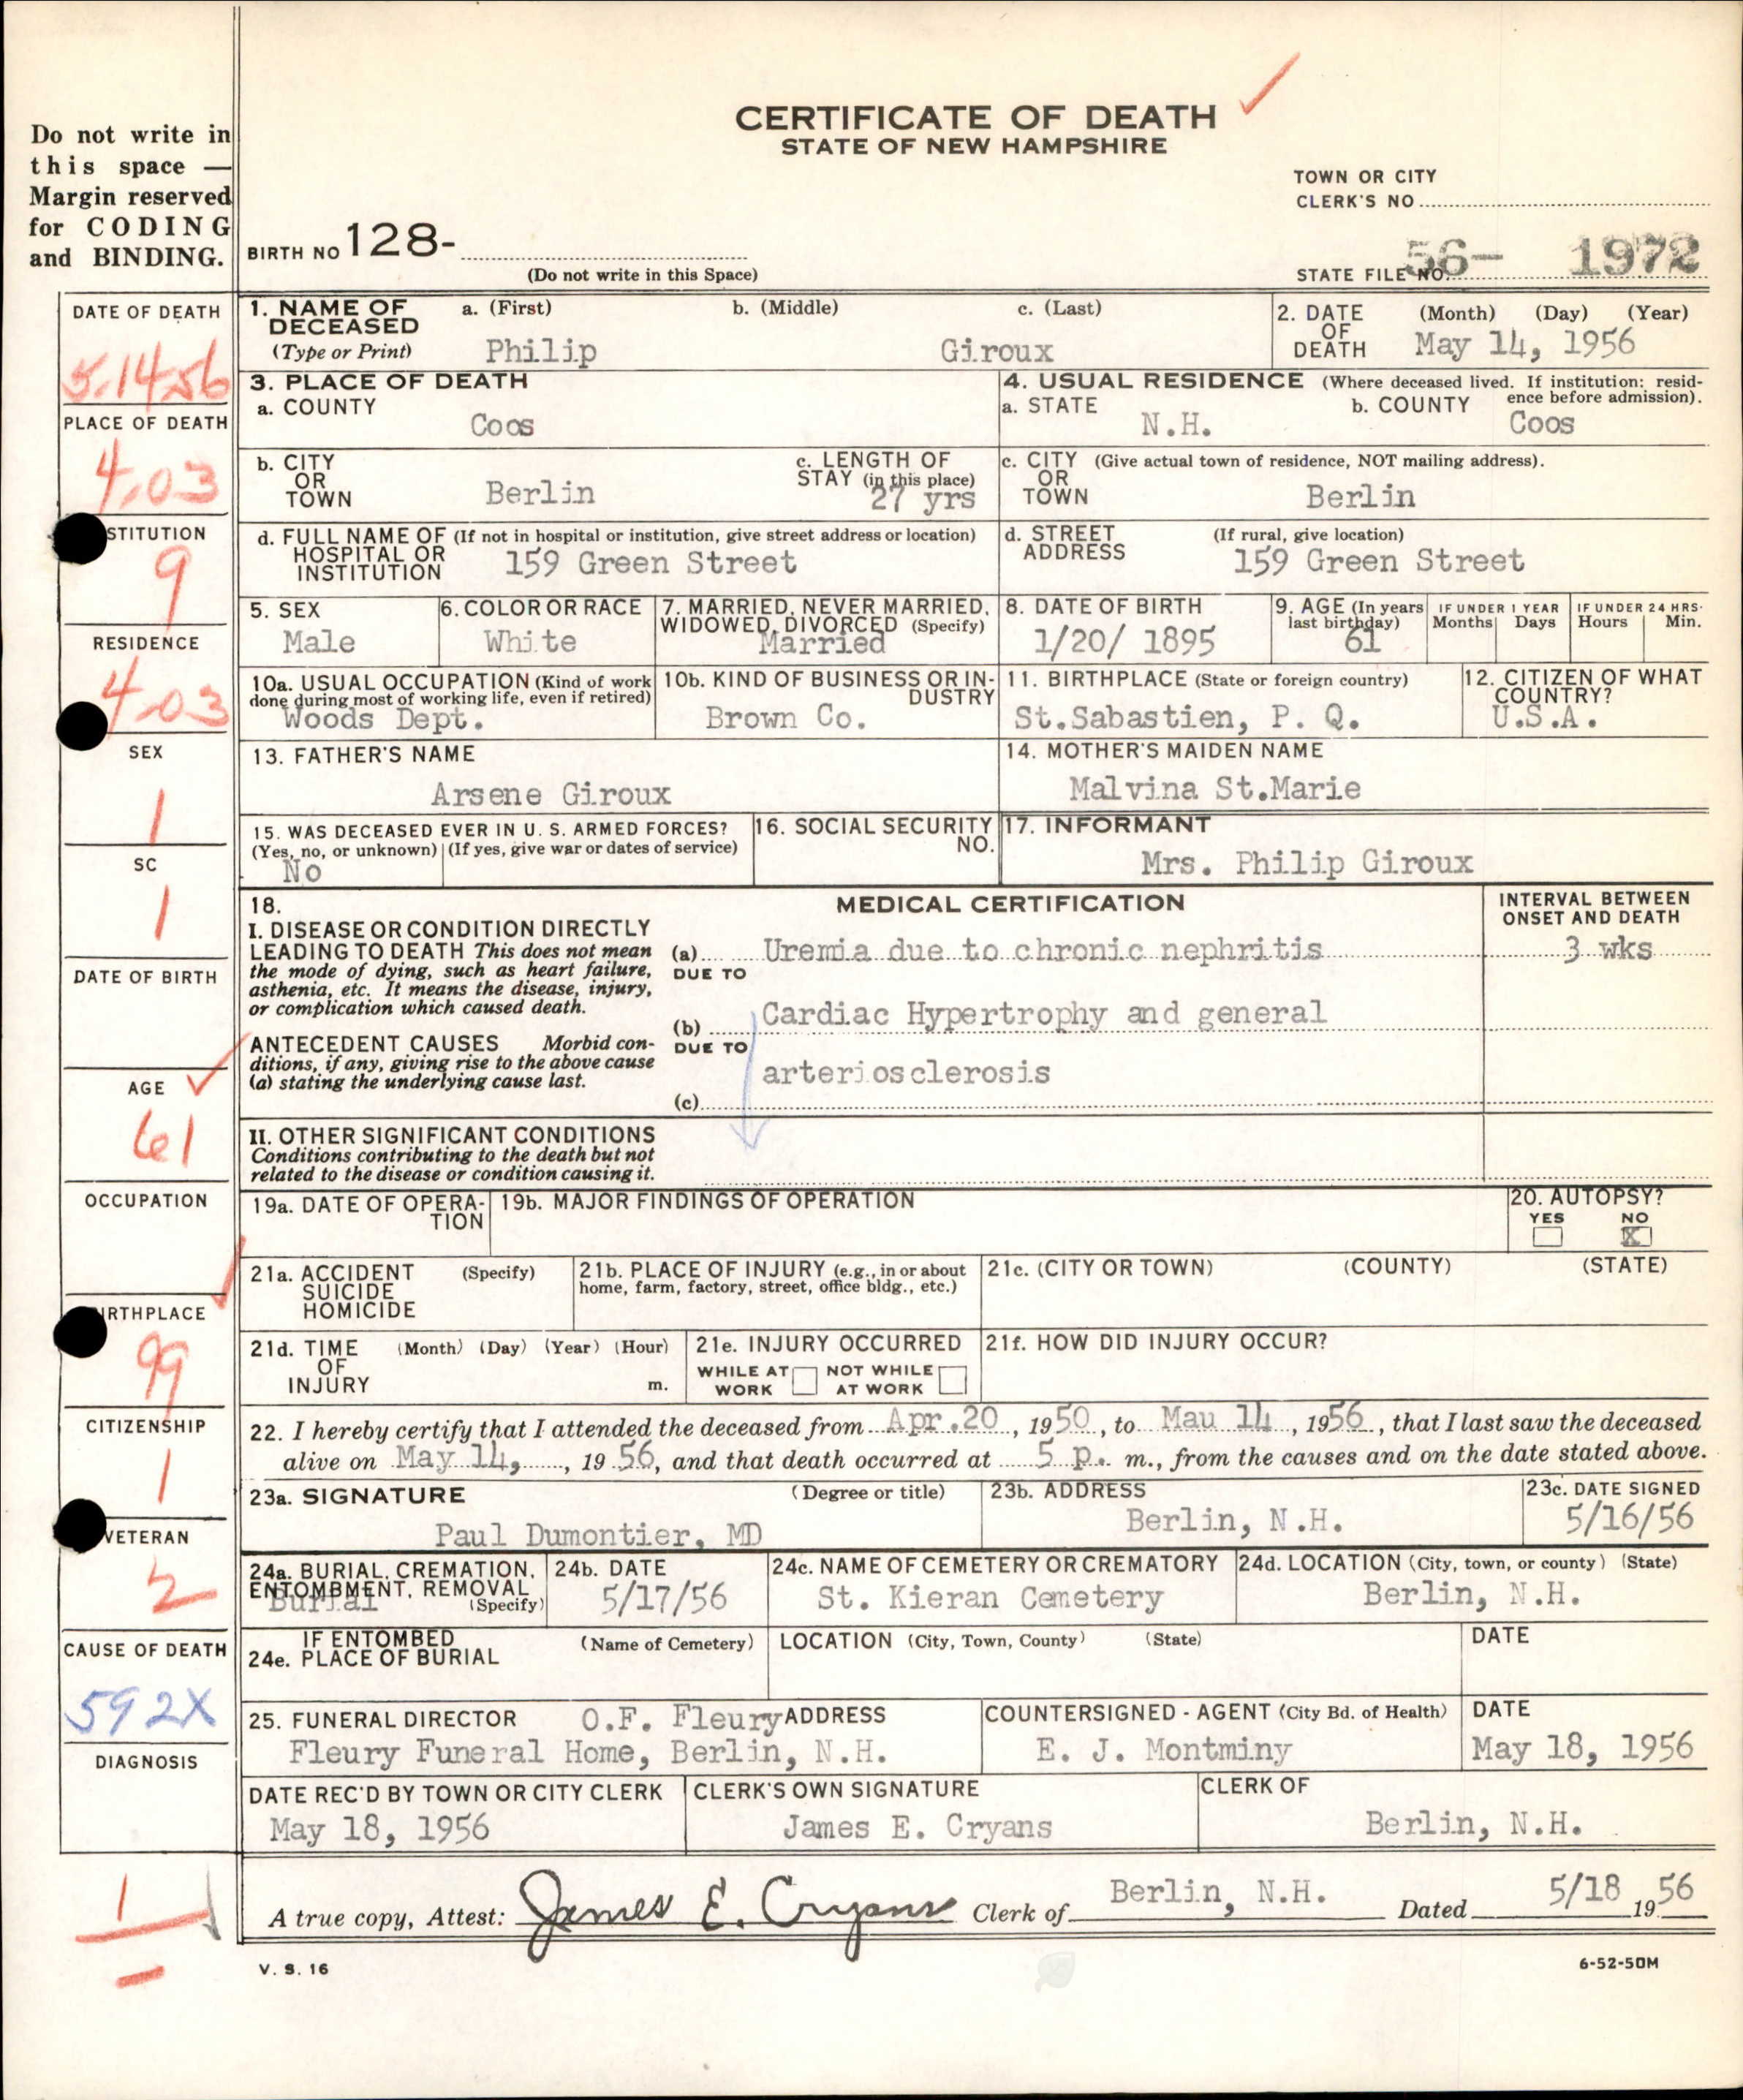 Do not write in
this space —
Margin reserved
for CODING
and BINDING.
CERTIFICATE OF DEATH
STATE OF NEW HAMPSHIRE
TOWN OR CITY
CLERK'S NO
BIRTH NO 128-
(Do not write in this Space)
STATE FILE NO. 56- 1972
DATE OF DEATH
5.14.56
PLACE OF DEATH
4.03
STITUTION
9
RESIDENCE
4.03
SEX
1
SC
1
DATE OF BIRTH
AGE
61
OCCUPATION
RTHPLACE
99
CITIZENSHIP
1
VETERAN
2
CAUSE OF DEATH
592X
DIAGNOSIS
1
1. NAME OF DECEASED (Type or Print) a. (First) b. (Middle) c. (Last)
Philip Giroux
2. DATE OF DEATH (Month) (Day) (Year)
May 14, 1956
3. PLACE OF DEATH
a. COUNTY
Coos
4. USUAL RESIDENCE (Where deceased lived. If institution: resid-
ence before admission).
a. STATE
N.H.
b. COUNTY
Coos
b. CITY OR TOWN
Berlin
c. LENGTH OF
STAY (in this place)
27 yrs
c. CITY (Give actual town of residence, NOT mailing address).
OR
TOWN
Berlin
d. FULL NAME OF (If not in hospital or institution, give street address or location)
HOSPITAL OR
INSTITUTION
159 Green Street
d. STREET (If rural, give location)
ADDRESS
159 Green Street
5. SEX
Male
6. COLOR OR RACE
White
7. MARRIED, NEVER MARRIED,
WIDOWED, DIVORCED (Specify)
Married
8. DATE OF BIRTH
1/20/ 1895
9. AGE (In years
last birthday)
61
IF UNDER 1 YEAR
Months Days
IF UNDER 24 HRS.
Hours Min.
10a. USUAL OCCUPATION (Kind of work
done during most of working life, even if retired)
Woods Dept.
10b. KIND OF BUSINESS OR IN-
DUSTRY
Brown Co.
11. BIRTHPLACE (State or foreign country)
St.Sabastien, P. Q.
12. CITIZEN OF WHAT
COUNTRY?
U.S.A.
13. FATHER'S NAME
Arsene Giroux
14. MOTHER'S MAIDEN NAME
Malvina St.Marie
15. WAS DECEASED EVER IN U. S. ARMED FORCES?
(Yes, no, or unknown) (If yes, give war or dates of service)
No
16. SOCIAL SECURITY
NO.
17. INFORMANT
Mrs. Philip Giroux
18.
MEDICAL CERTIFICATION
INTERVAL BETWEEN
ONSET AND DEATH
I. DISEASE OR CONDITION DIRECTLY
LEADING TO DEATH This does not mean
the mode of dying, such as heart failure,
asthenia, etc. It means the disease, injury,
or complication which caused death.
(a) Uremia due to chronic nephritis 3 wks
DUE TO
(b) Cardiac Hypertrophy and general
ANTECEDENT CAUSES Morbid con-
ditions, if any, giving rise to the above cause
(a) stating the underlying cause last.
DUE TO
arteriosclerosis
(c)
II. OTHER SIGNIFICANT CONDITIONS
Conditions contributing to the death but not
related to the disease or condition causing it.
19a. DATE OF OPERA-
TION
19b. MAJOR FINDINGS OF OPERATION
20. AUTOPSY?
YES NO
X
21a. ACCIDENT (Specify)
SUICIDE
HOMICIDE
21b. PLACE OF INJURY (e.g., in or about
home, farm, factory, street, office bldg., etc.)
21c. (CITY OR TOWN) (COUNTY) (STATE)
21d. TIME (Month) (Day) (Year) (Hour)
OF
INJURY m.
21e. INJURY OCCURRED
WHILE AT NOT WHILE
WORK AT WORK
21f. HOW DID INJURY OCCUR?
22. I hereby certify that I attended the deceased from Apr.20, 1950, to Mau 14, 1956, that I last saw the deceased
alive on May 14, , 19 56, and that death occurred at 5 p. m., from the causes and on the date stated above.
23a. SIGNATURE (Degree or title)
Paul Dumontier, MD
23b. ADDRESS
Berlin, N.H.
23c. DATE SIGNED
5/16/56
24a. BURIAL, CREMATION,
ENTOMBMENT, REMOVAL
(Specify)
Burial
24b. DATE
5/17/56
24c. NAME OF CEMETERY OR CREMATORY
St. Kieran Cemetery
24d. LOCATION (City, town, or county) (State)
Berlin, N.H.
IF ENTOMBED (Name of Cemetery)
24e. PLACE OF BURIAL
LOCATION (City, Town, County) (State)
DATE
25. FUNERAL DIRECTOR O.F. Fleury ADDRESS
Fleury Funeral Home, Berlin, N.H.
COUNTERSIGNED - AGENT (City Bd. of Health)
E. J. Montminy
DATE
May 18, 1956
DATE REC'D BY TOWN OR CITY CLERK
May 18, 1956
CLERK'S OWN SIGNATURE
James E. Cryans
CLERK OF
Berlin, N.H.
A true copy, Attest: James E. Cryans Clerk of Berlin, N.H. Dated 5/18 19 56
V. S. 16
6-52-50M